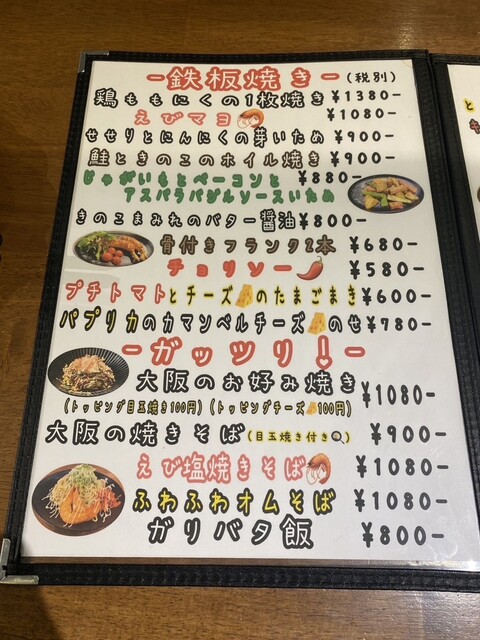 -鉄板焼き-(税別)
鶏ももにくの1枚焼き ¥1380-
えびマヨ ¥1080-
せせりとにんにくの芽いため ¥900-
鮭ときのこのホイル焼き ¥900-
じゃがいもとベーコンと ¥880-
アスパラバジルソースいため
きのこまみれのバター醤油 ¥800-
骨付きフランク2本 ¥680-
チョリソー ¥580-
プチトマトとチーズのたまごまき ¥600-
パプリカのカマンベルチーズのせ ¥780-
-ガッツリ!-
大阪のお好み焼き ¥1080-
(トッピング目玉焼き100円)(トッピングチーズ100円)
大阪の焼きそば(目玉焼き付き) ¥900-
えび塩焼きそば ¥1080-
ふわふわオムそば ¥1080-
ガリバタ飯 ¥800-
と